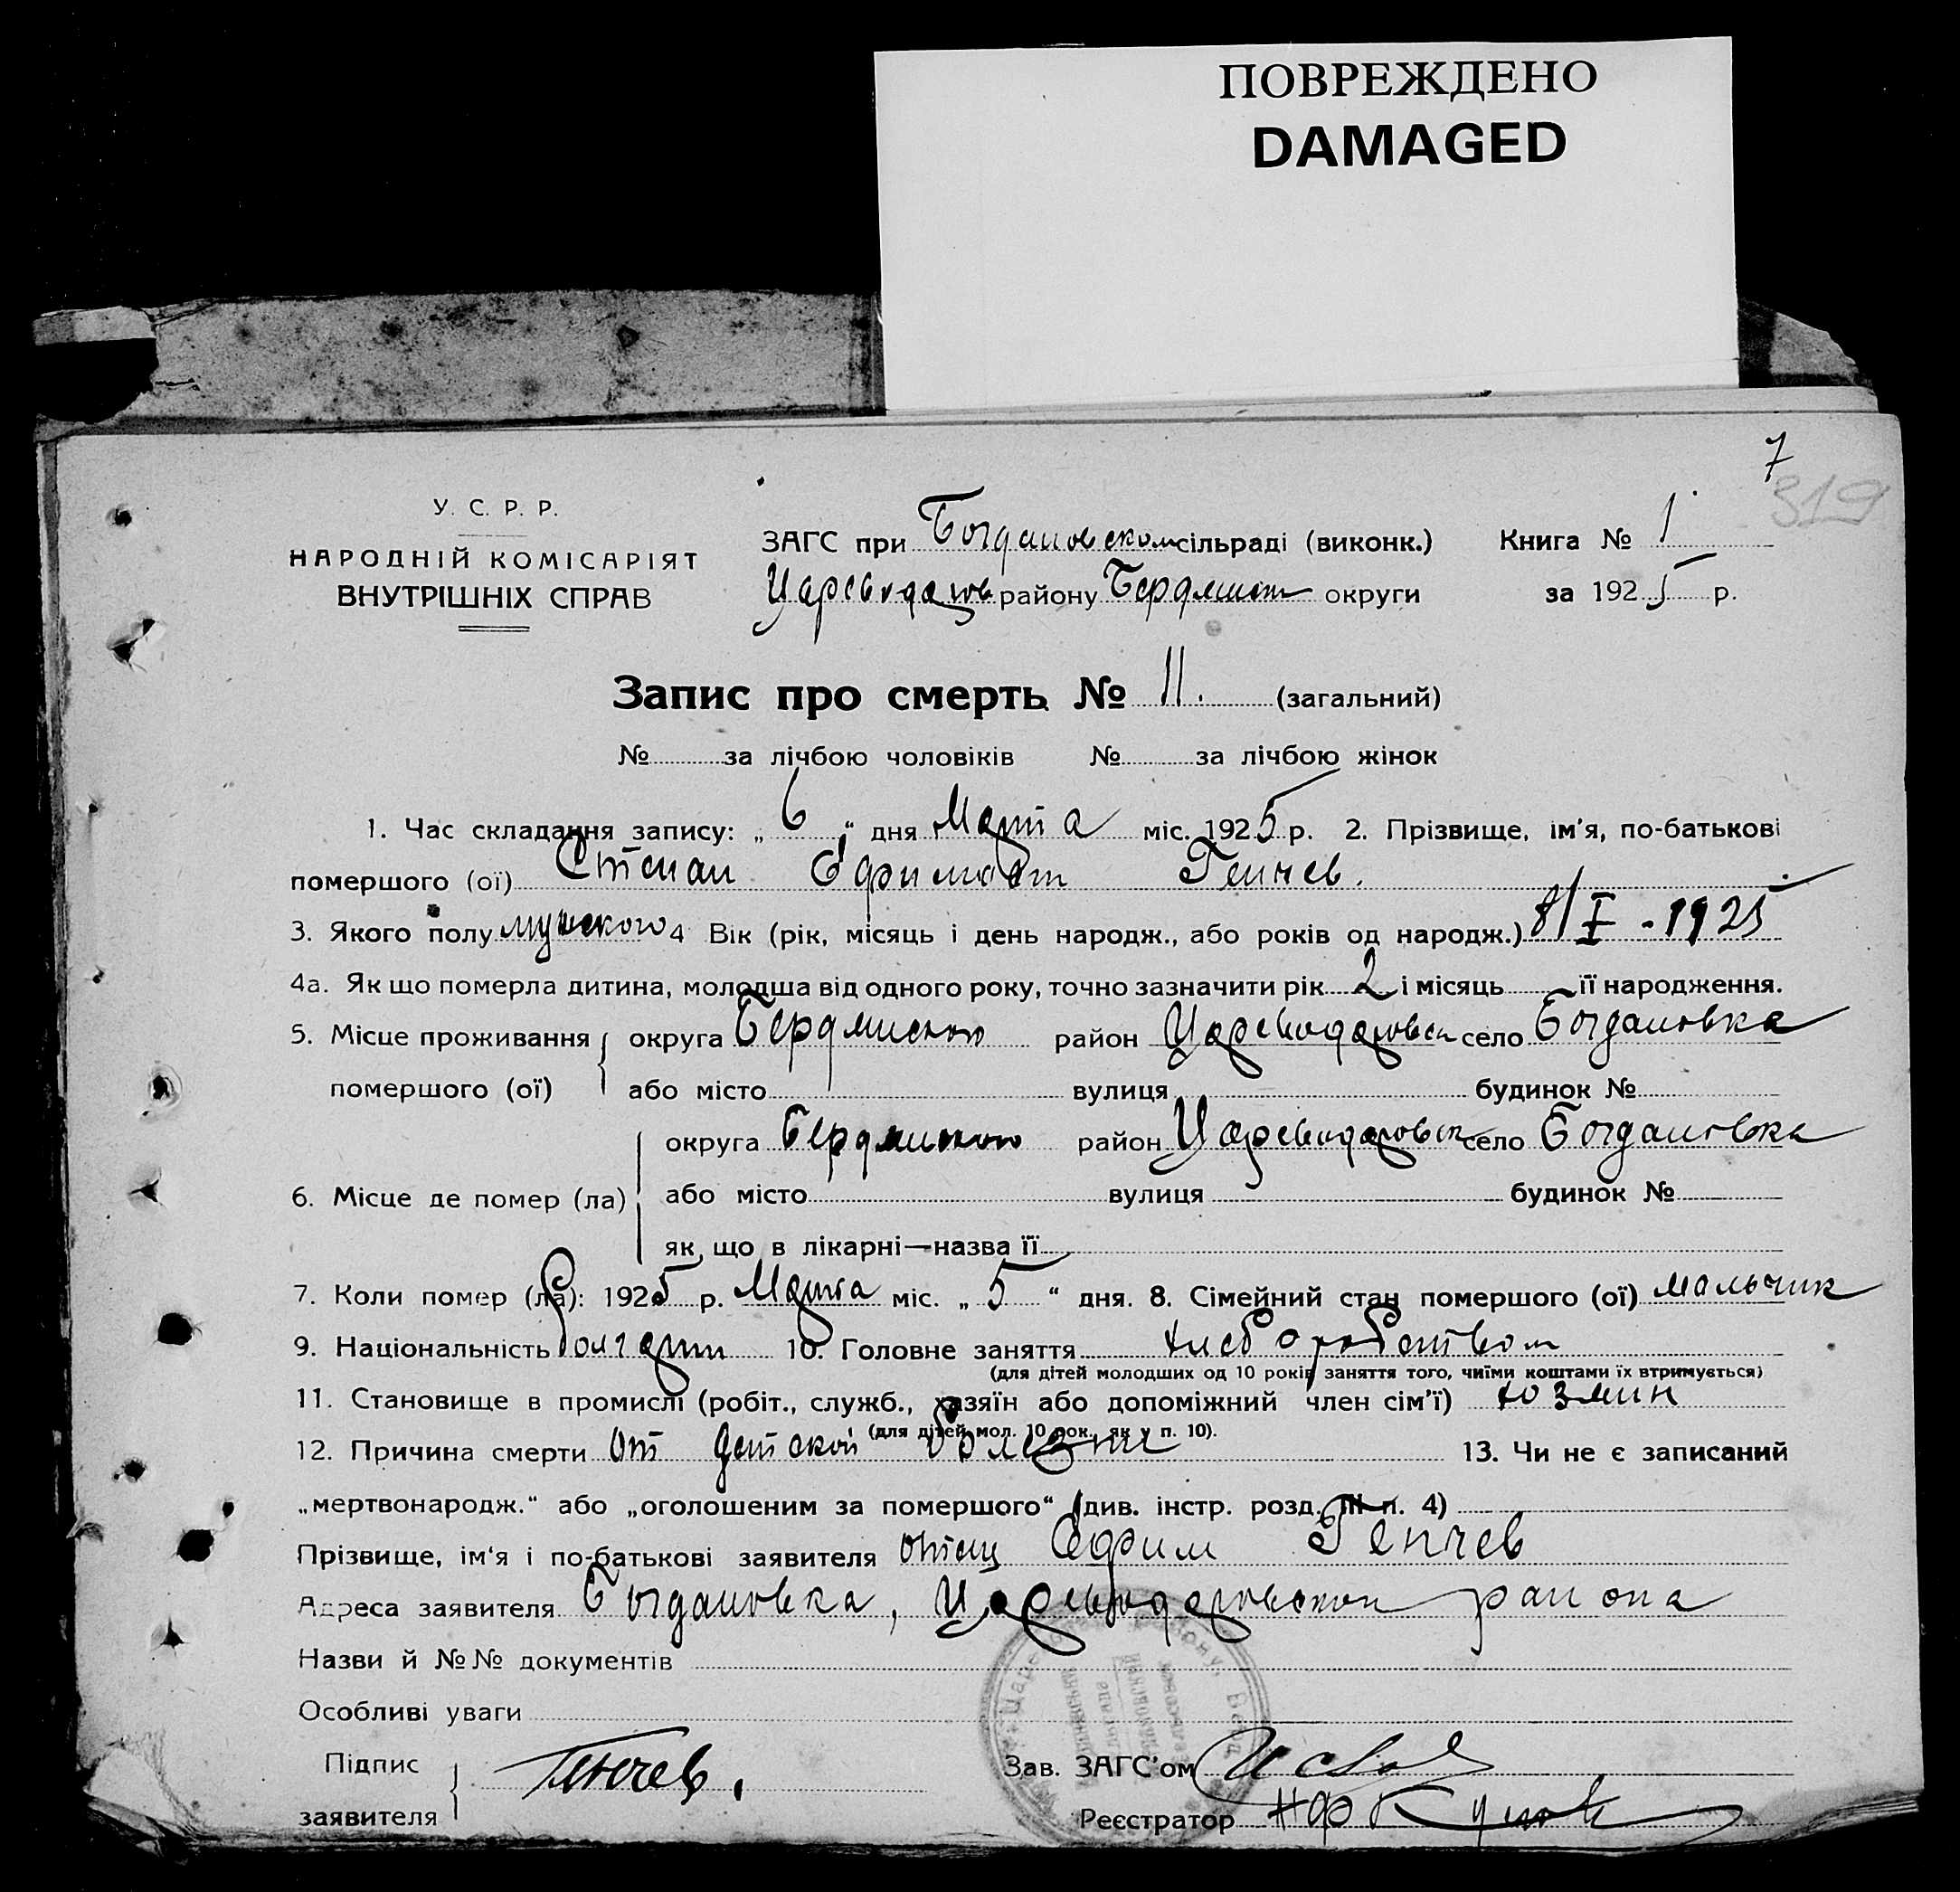 ПОВРЕЖДЕНО
DAMAGED
7
319
У. С. Р. Р.
НАРОДНІЙ КОМІСАРІЯТ
ВНУТРІШНІХ СПРАВ
ЗАГС при Богдановском сільраді (виконк.) Книга № 1
району округи за 1925 р.
Запис про смерть № 11. (загальний)
№ за лічбою чоловіків № за лічбою жінок
1. Час складання запису: „ 6 " дня Марта міс. 1925 р. 2. Прізвище, ім'я, по-батькові
помершого (ої) Степан Генчев.
3. Якого полу мужского 4 Вік (рік, місяць і день народж., або років од народж.) 8/I - 1925
4а. Як що померла дитина, молодша від одного року, точно зазначити рік 2 і місяць її народження.
5. Місце проживання округа район село Богдановка
помершого (ої) або місто вулиця будинок №
округа район село Богдановка
6. Місце де помер (ла) або місто вулиця будинок №
як що в лікарні—назва її
7. Коли помер (ла): 1925 р. Марта міс. „ 5 " дня. 8. Сімейний стан помершого (ої) мальчик
9. Національність болгарин 10. Головне заняття хлеборобством
(для дітей молодших од 10 років заняття того, чиїми коштами їх втримується)
11. Становище в промислі (робіт., служб., хазяїн або допоміжний член сім'ї) хозяин
(для дітей мол. 10 рок. як у п. 10).
12. Причина смерти от детской болезни 13. Чи не є записаний
„мертвонародж." або „оголошеним за помершого" (див. інстр. розд. III п. 4)
Прізвище, ім'я і по-батькові заявителя отец Ефим Генчев
Адреса заявителя Богдановка, района
Назви й №№ документів
Особливі уваги
Підпис
заявителя Генчев.
Зав. ЗАГС'ом
Реєстратор